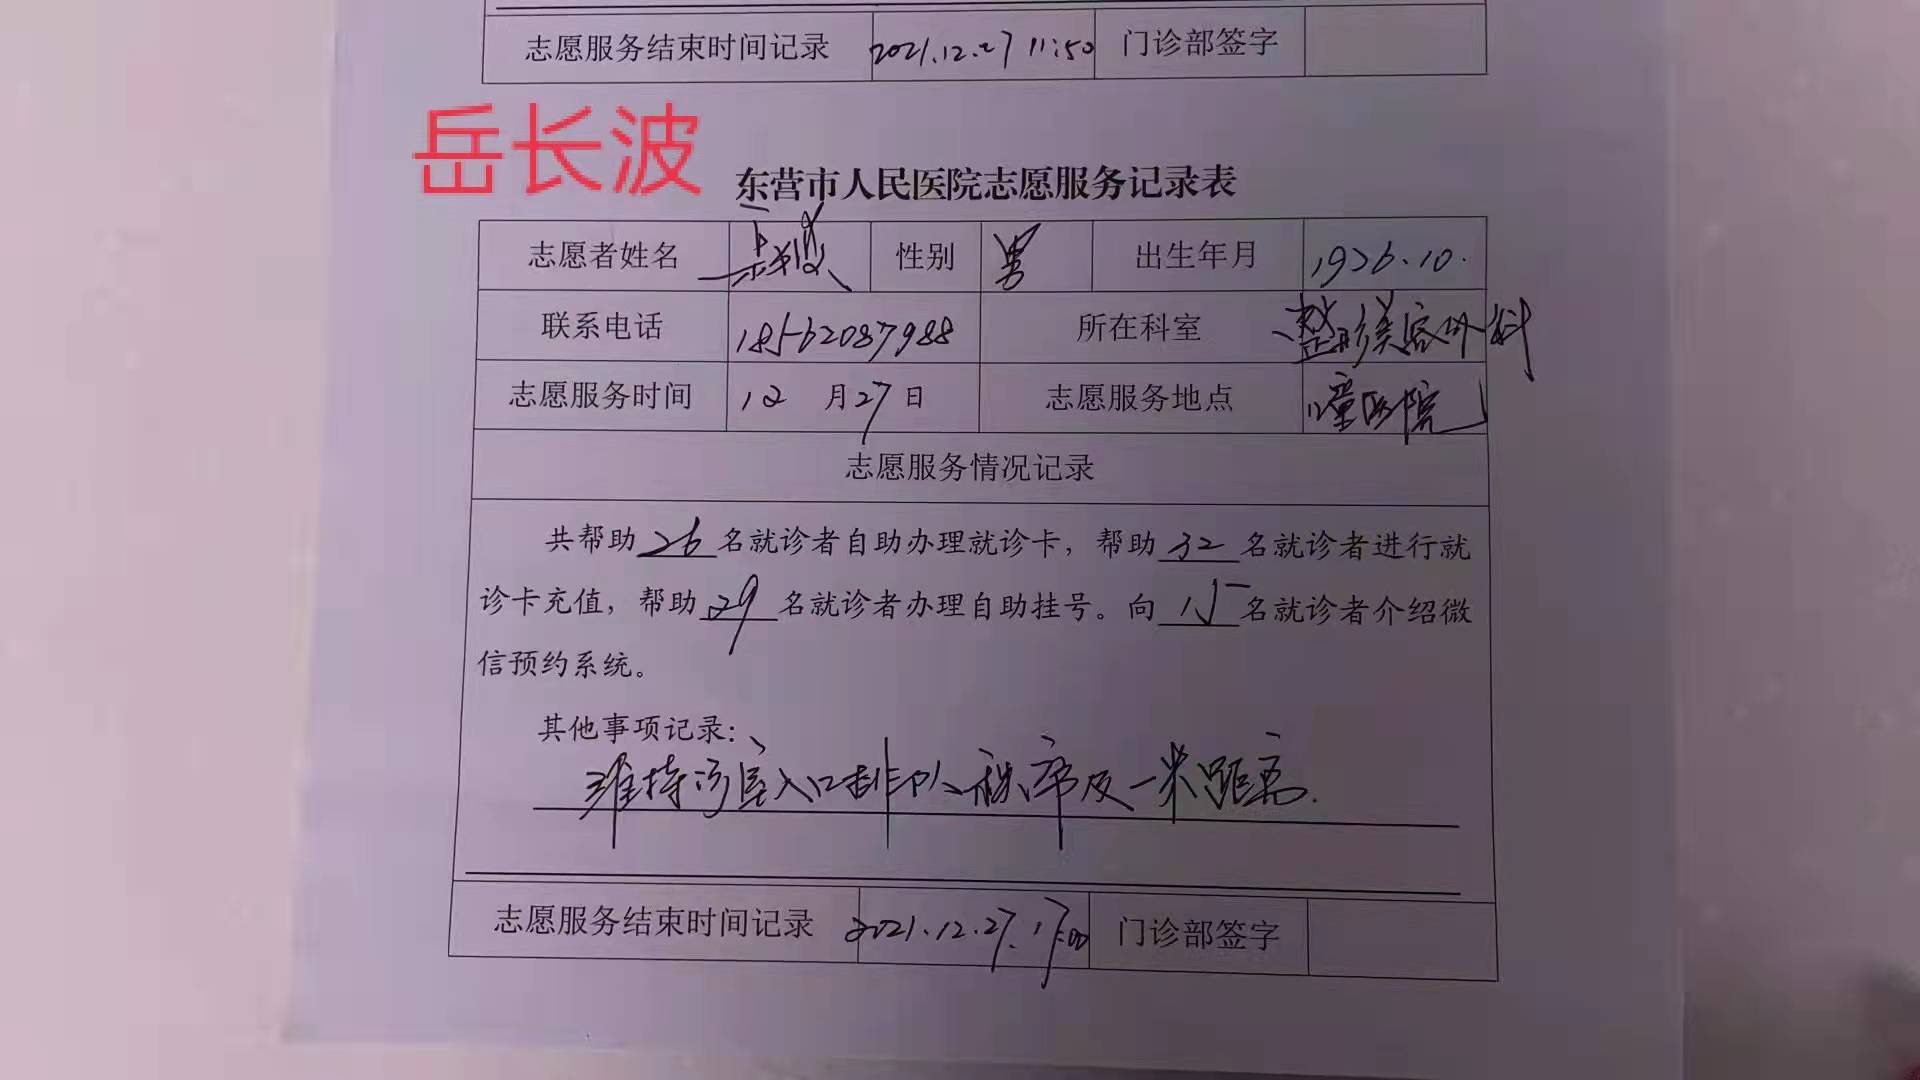 志愿服务结束时间记录 2021.12.27 11:50 门诊部签字
岳长波
东营市人民医院志愿服务记录表
志愿者姓名 性别 男 出生年月 1976.10.
联系电话 18562087988 所在科室 整形美容外科
志愿服务时间 12 月27日 志愿服务地点 儿童医院
志愿服务情况记录
共帮助26名就诊者自助办理就诊卡，帮助32名就诊者进行就
诊卡充值，帮助29名就诊者办理自助挂号。向15名就诊者介绍微
信预约系统。
其他事项记录：
维持诊室入口排队秩序及一米距离.
志愿服务结束时间记录 2021.12.27.17:00 门诊部签字